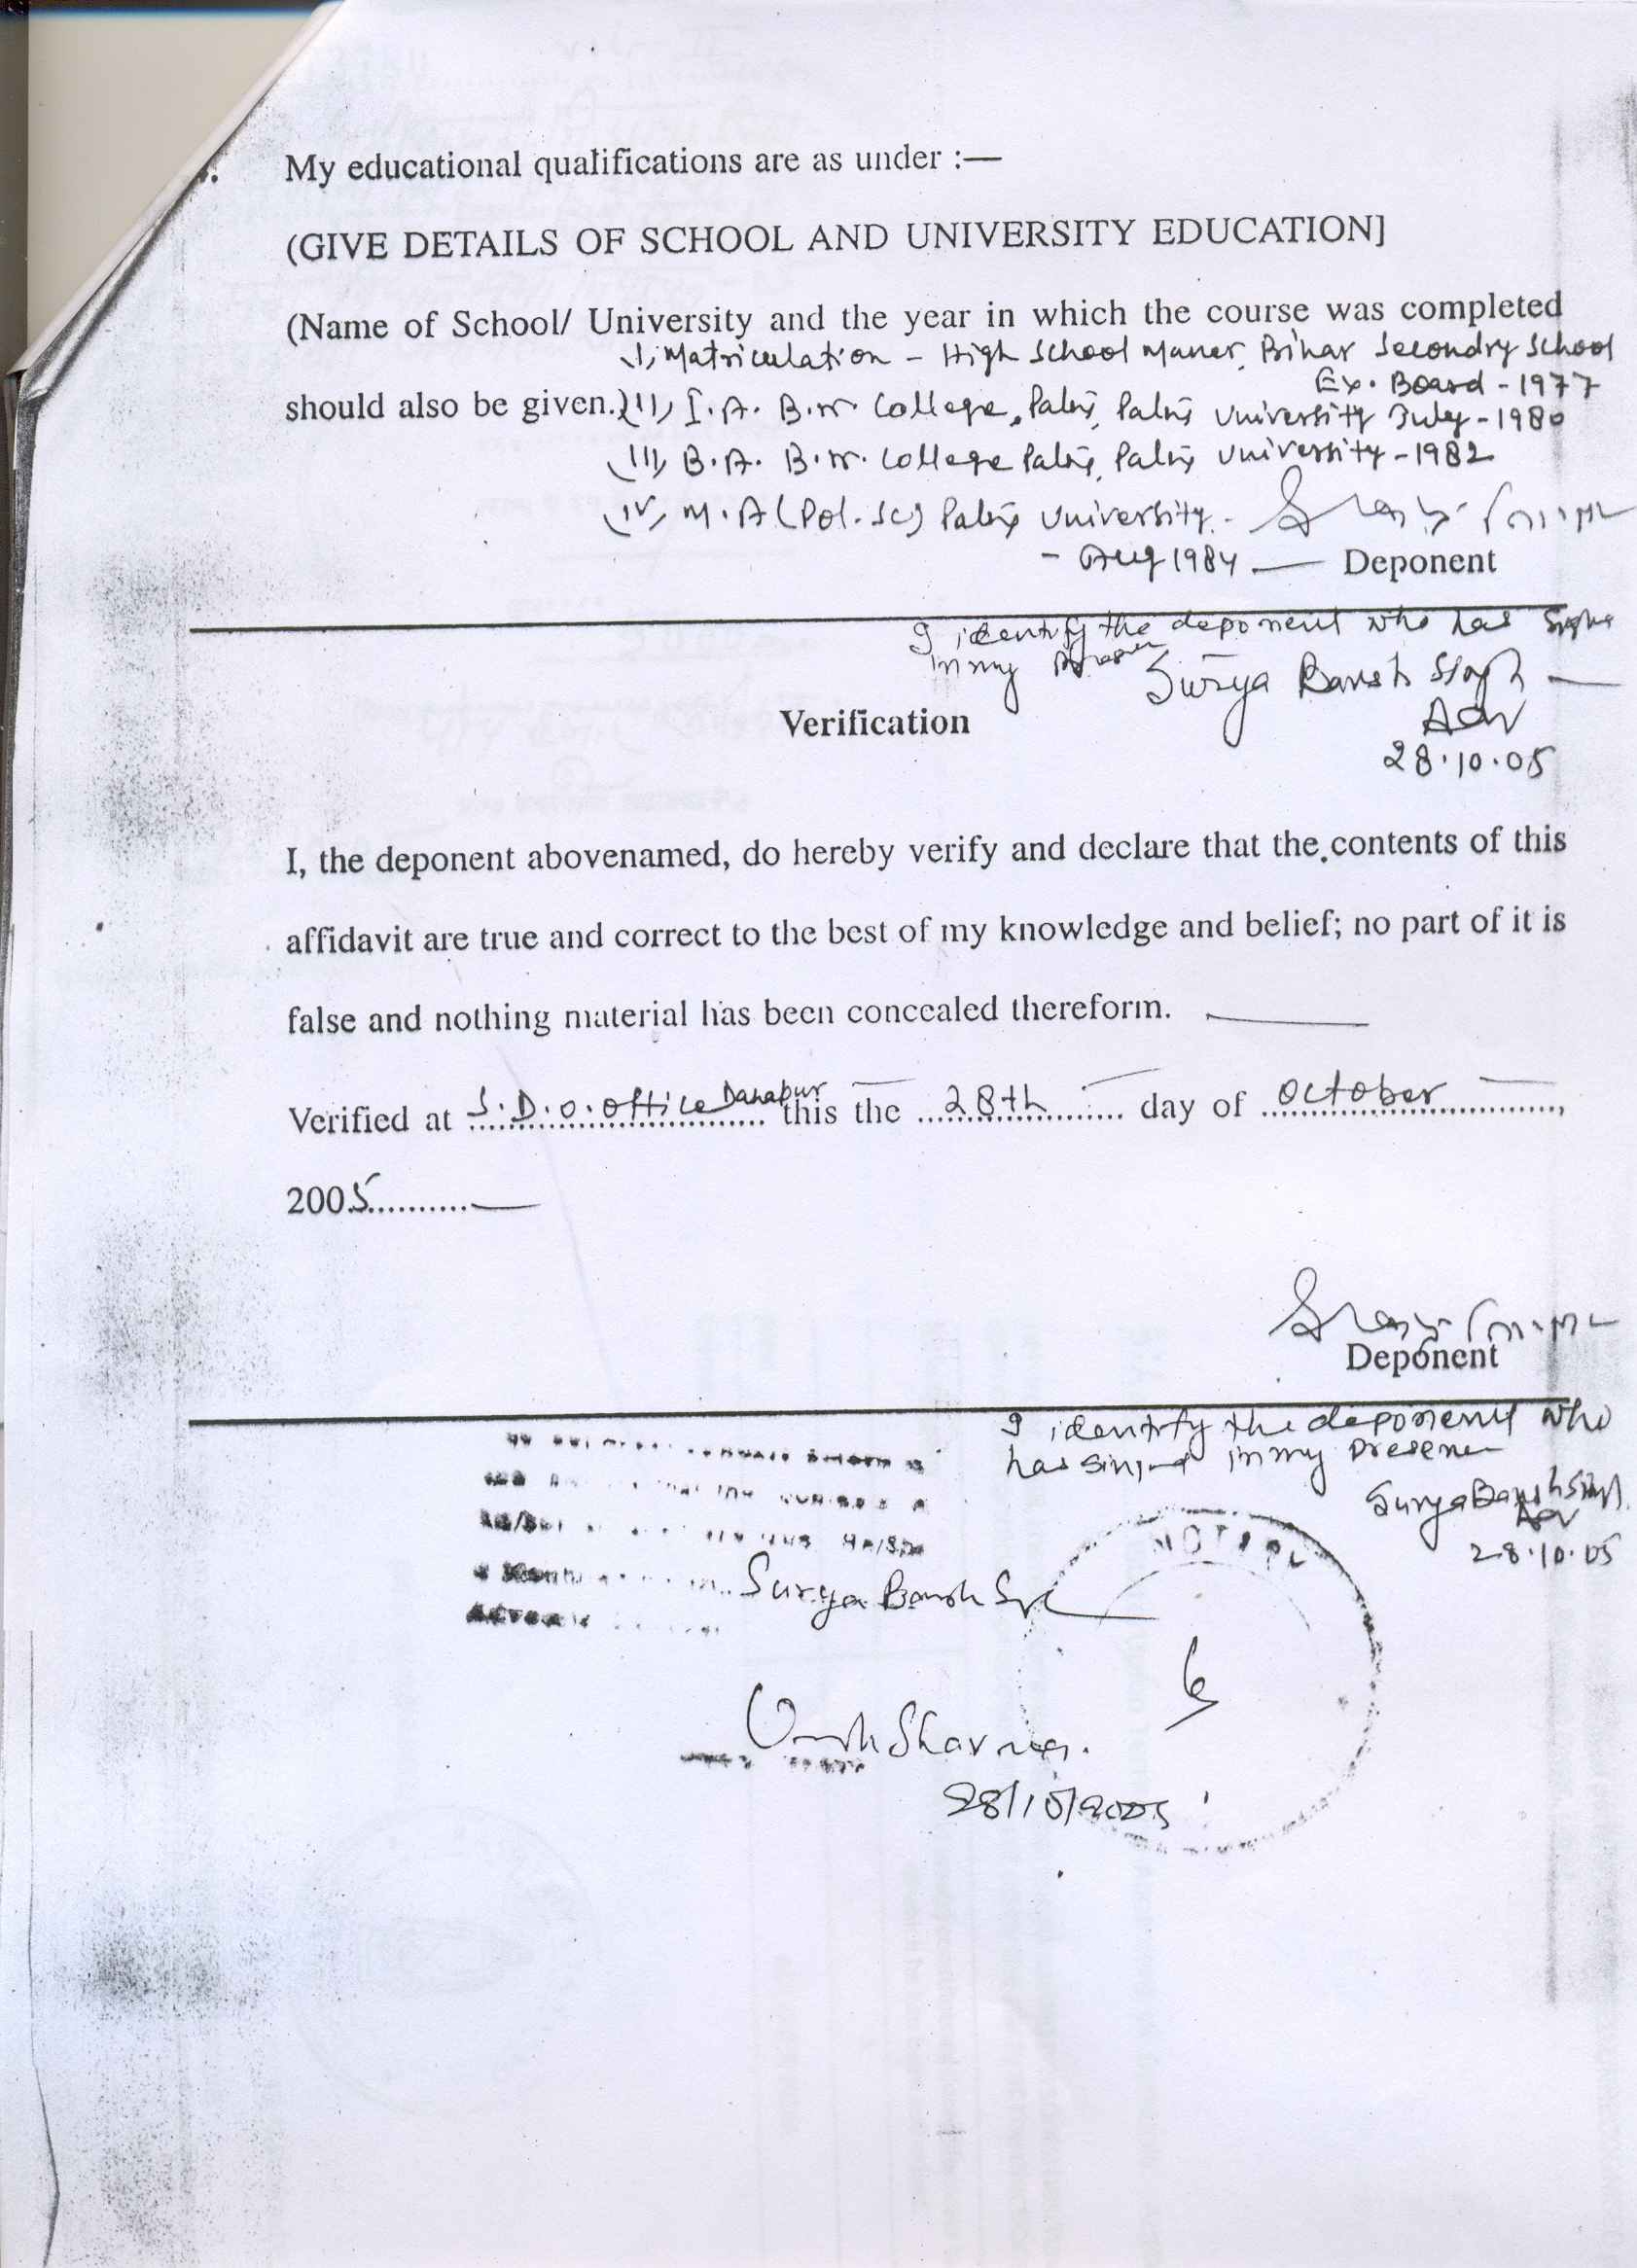 My educational qualifications are as under :—
(GIVE DETAILS OF SCHOOL AND UNIVERSITY EDUCATION]
(Name of School/ University and the year in which the course was completed
(I) Matriculation - High School Maner, Bihar Secondry School
Ex. Board - 1977
should also be given.) (II) I.A. B.N. College, University July - 1980
(III) B.A. B.N. College University - 1982
(IV) M.A (Pol. Sc) University -
- Aug 1984 — Deponent
I identify the deponent who has
in my
Surya Bansh Singh
Adv
28.10.05
Verification
I, the deponent abovenamed, do hereby verify and declare that the contents of this
affidavit are true and correct to the best of my knowledge and belief; no part of it is
false and nothing material has been concealed thereform.
Verified at S.D.O. office Danapur this the 28th day of October,
2005
Deponent
I identify the deponent who
has in my
Surya Bansh Singh
Adv
28.10.05
Surya Bansh
NOTARY
Sharma.
28/10/2005